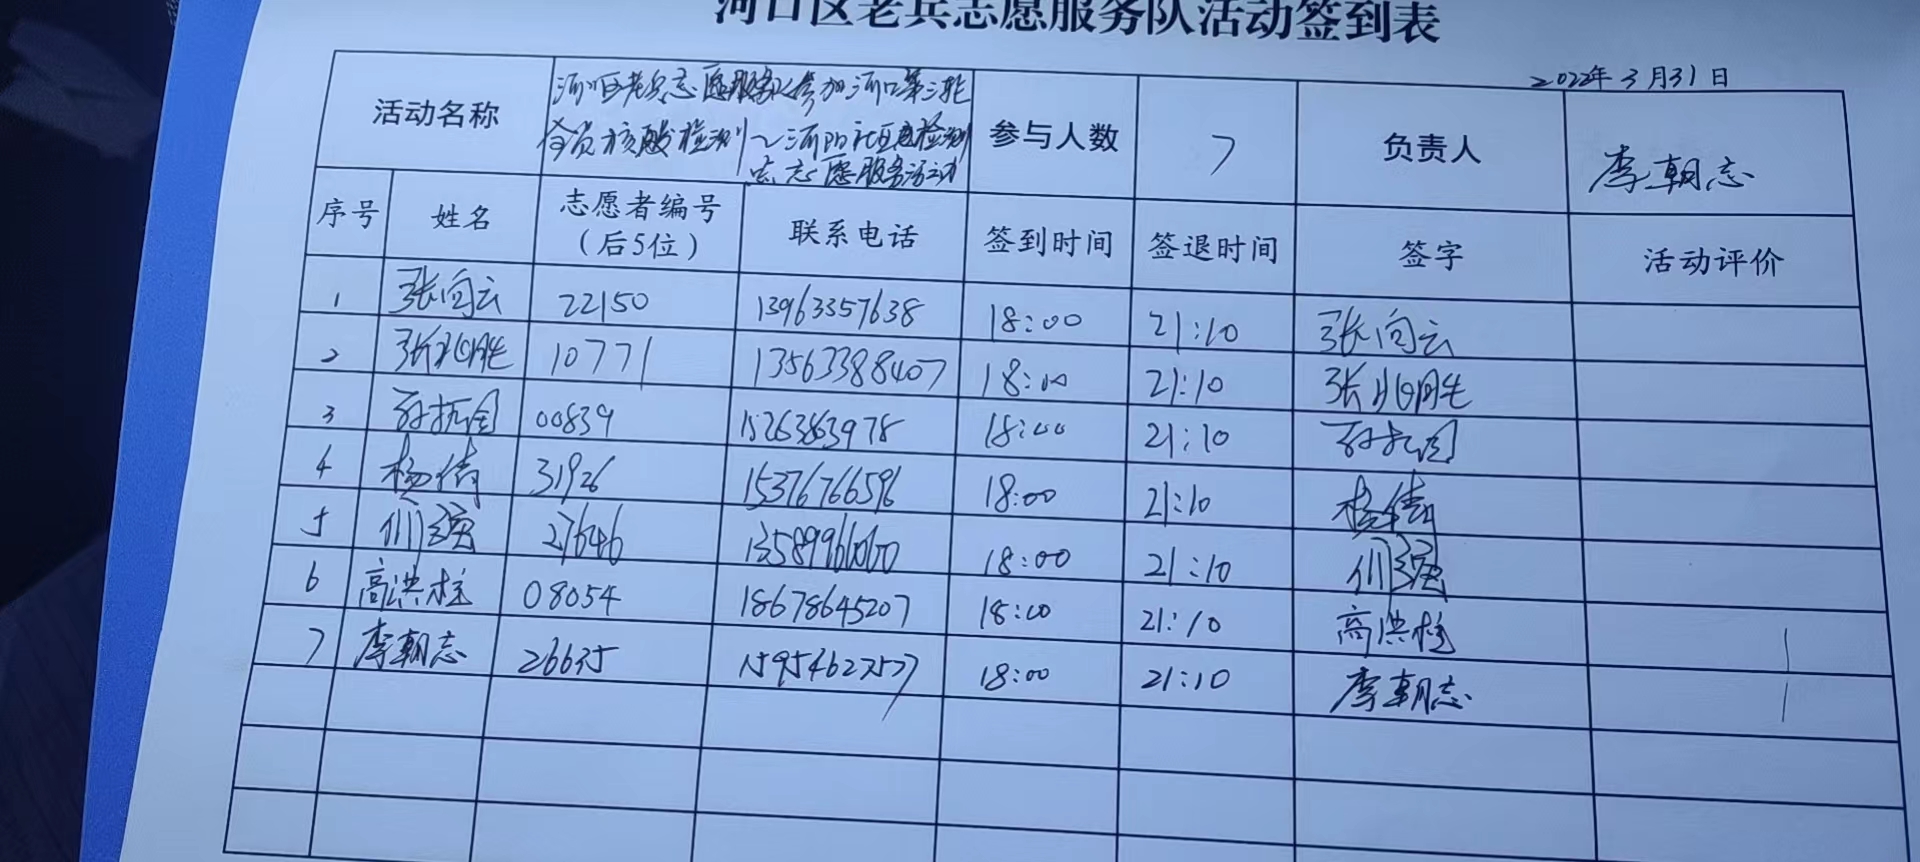 河口区老兵志愿服务队活动签到表
2022年3月31日
活动名称 河口区老兵志愿服务队参加河口第三轮 参与人数 7 负责人 李朝志
全员核酸检测～河防社区点检测
点志愿服务活动
序号 姓名 志愿者编号 联系电话 签到时间 签退时间 签字 活动评价
（后5位）
1 张向云 22150 13963357638 18:00 21:10 张向云
2 张兆胜 10771 13563388407 18:00 21:10 张兆胜
3 00839 15263863978 18:00 21:10
4 杨倩 31926 15376766596 18:00 21:10 杨倩
5 27646 18:00 21:10
6 高洪柱 08054 18678645207 18:00 21:10 高洪柱
7 李朝志 26635 15954627577 18:00 21:10 李朝志